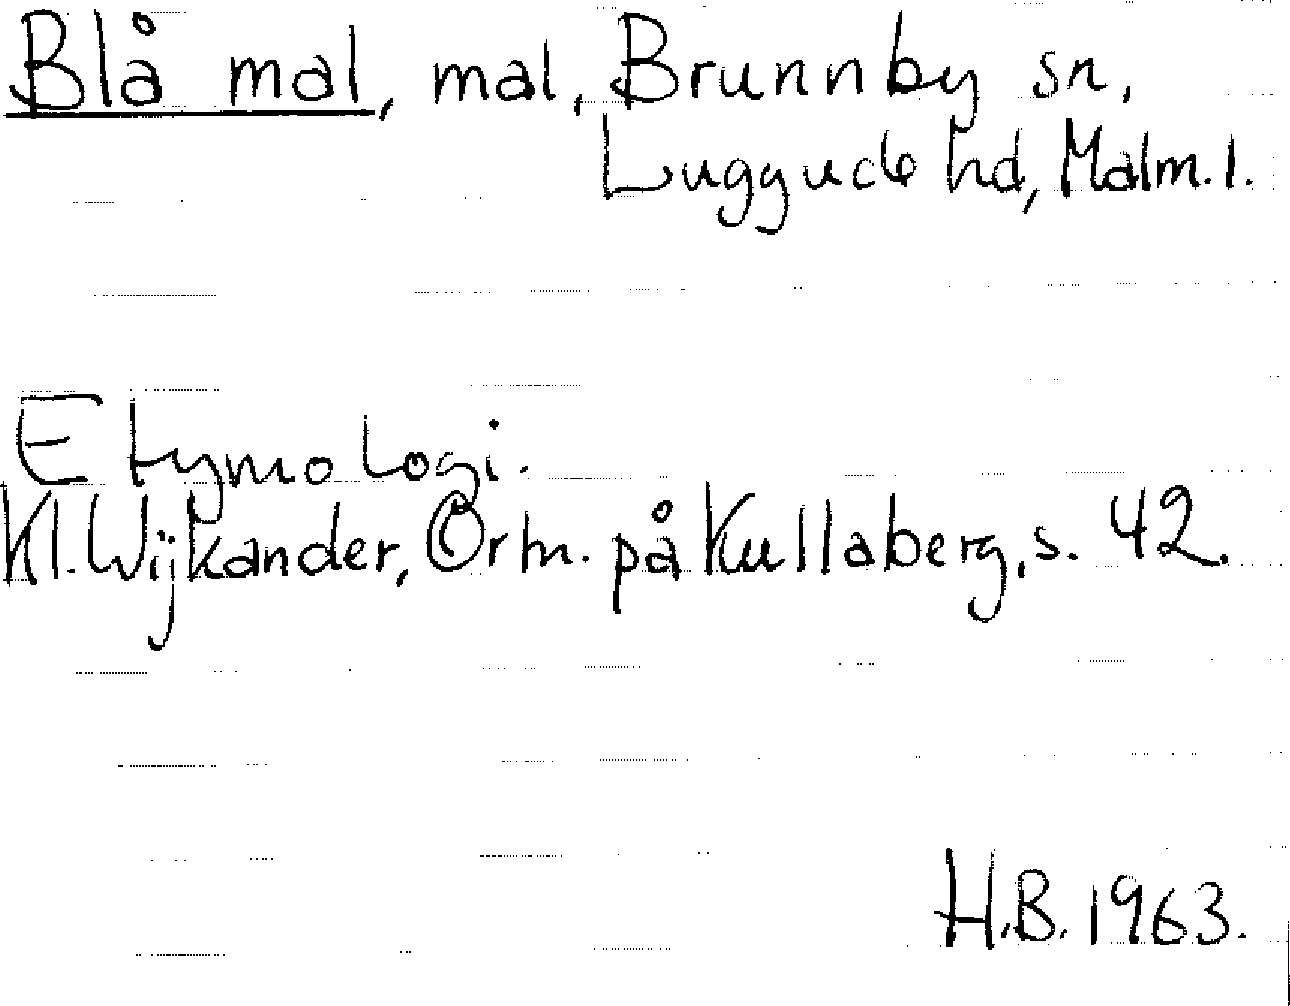 Blå mal, mal, Brunnby sn,
Luggude hd, Malm. l.
Etymologi.
Kl. Wijkander, Ortn. på Kullaberg, s. 42.
H.B. 1963.